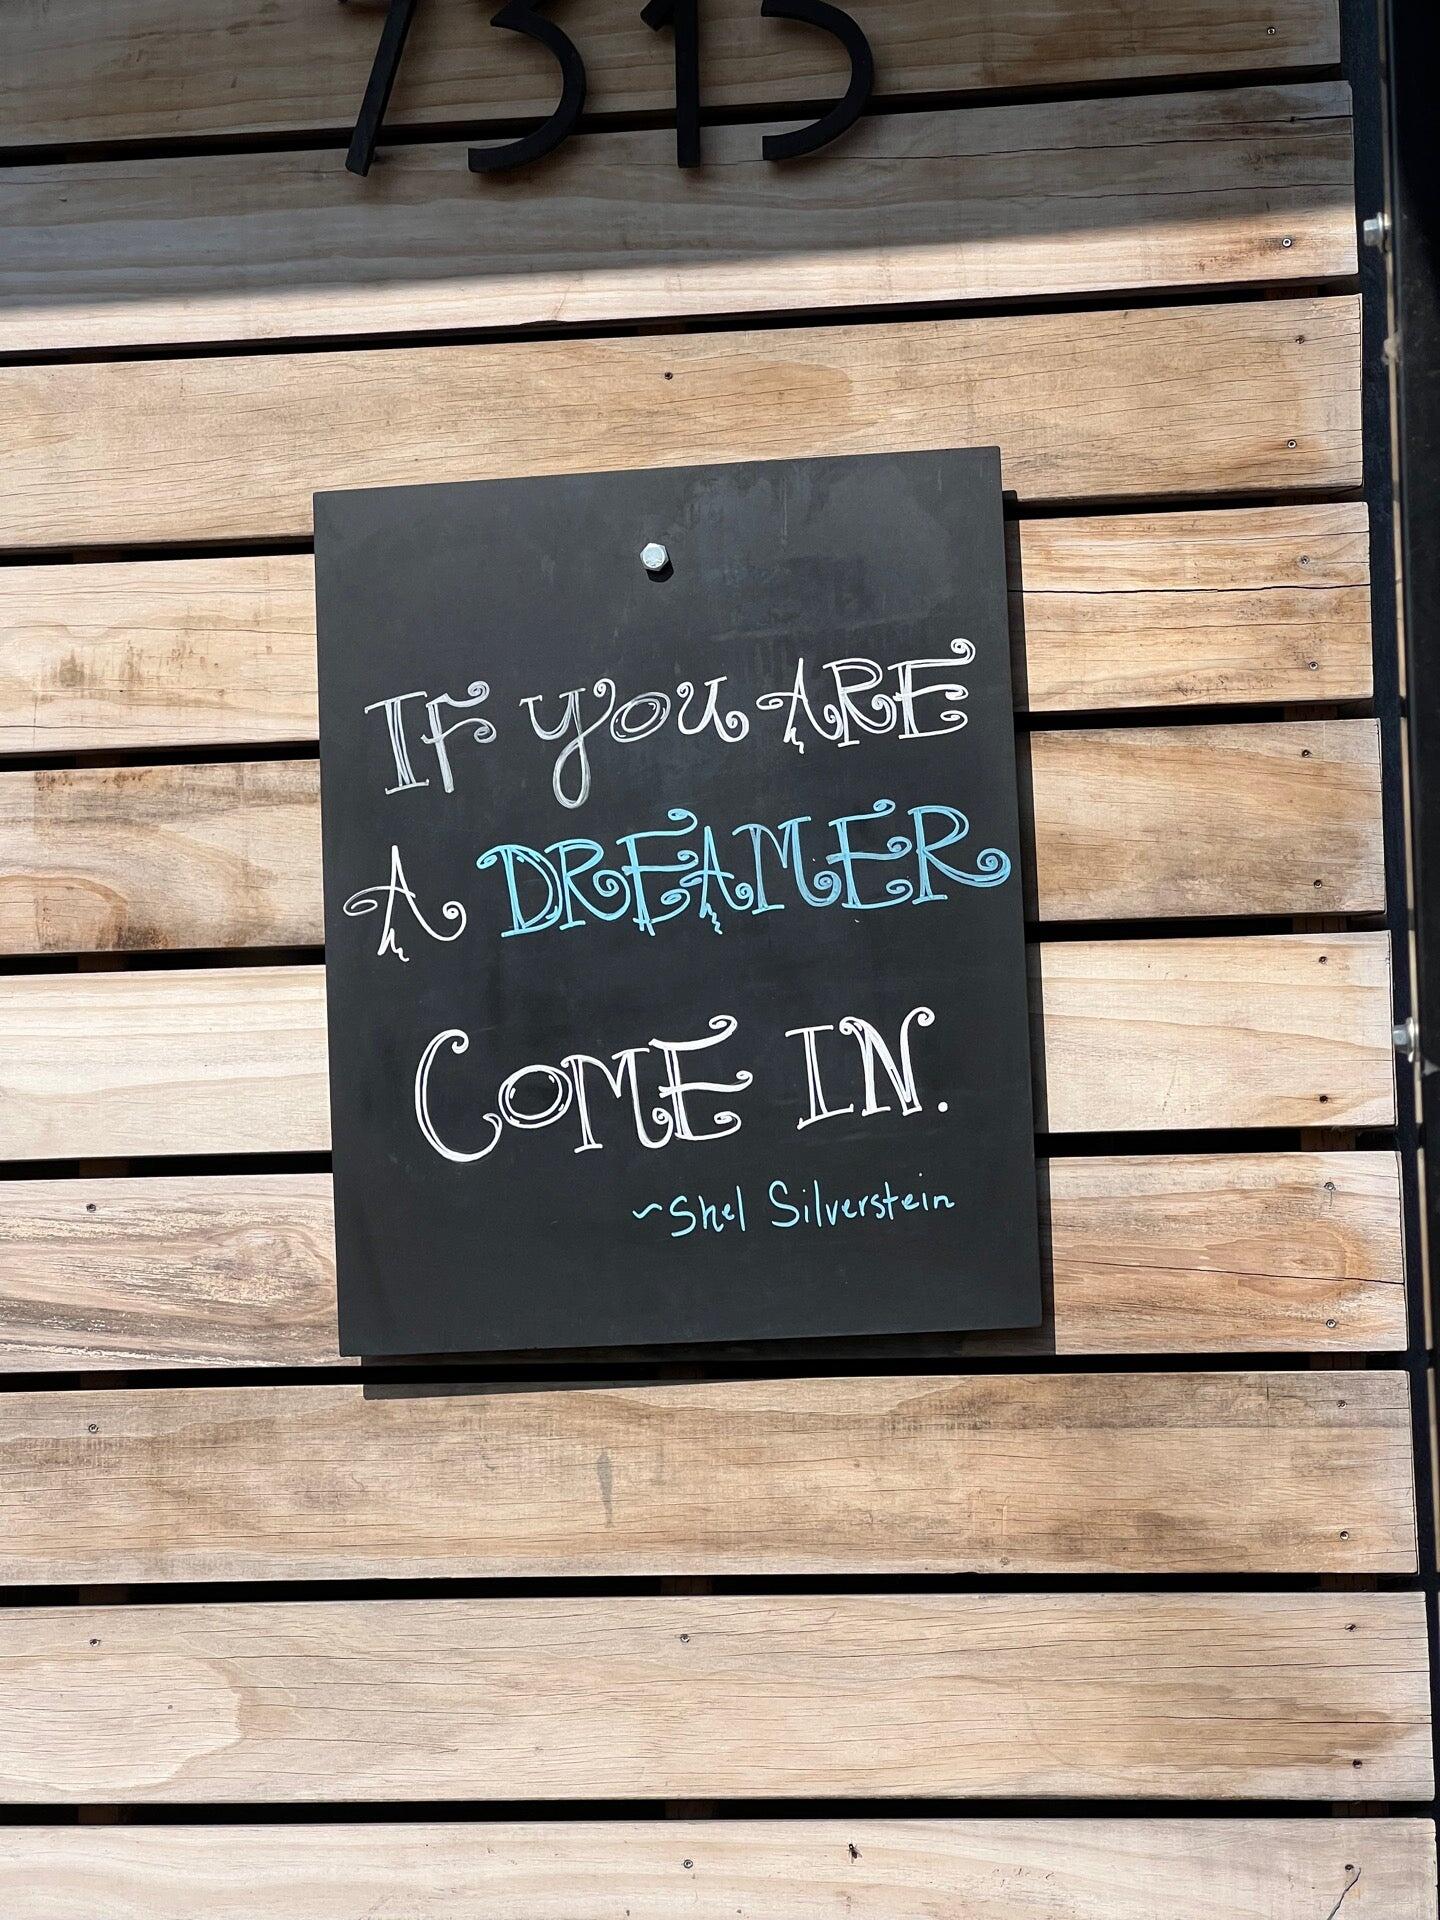 7315
IF you ARE
A DREAMER
COME IN.
~Shel Silverstein